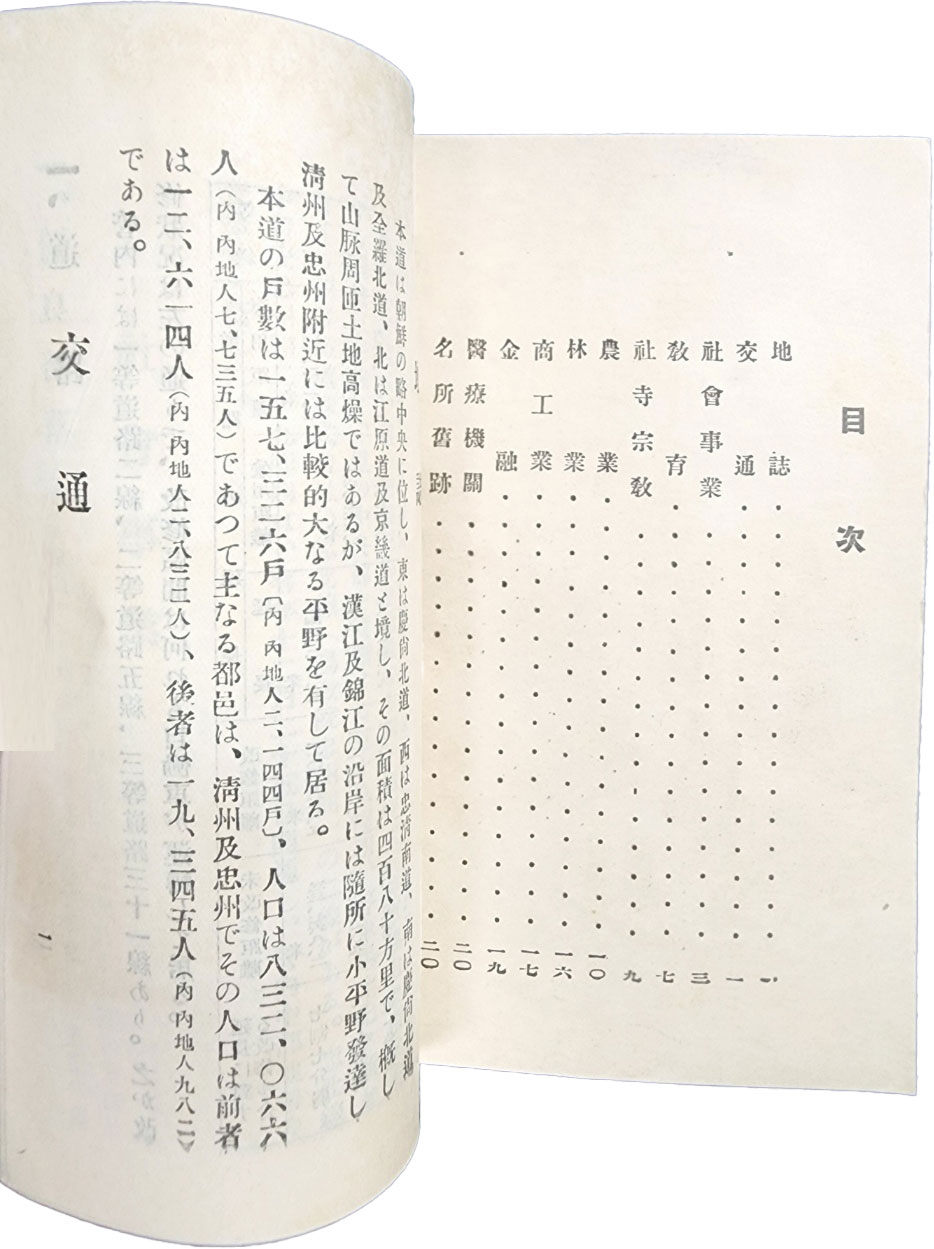 目次
地誌・・・・・・・・・・・・・・・・一
交通・・・・・・・・・・・・・・・・一
社會事業・・・・・・・・・・・・・・・・三
教育・・・・・・・・・・・・・・・・七
社寺宗教・・・・・・・・・・・・・・・・九
農業・・・・・・・・・・・・・・・・一〇
林業・・・・・・・・・・・・・・・・一六
商工業・・・・・・・・・・・・・・・・一七
金融・・・・・・・・・・・・・・・・一九
醫療機關・・・・・・・・・・・・・・・・二〇
名所舊跡・・・・・・・・・・・・・・・・二〇
本道は朝鮮の略中央に位し、東は慶尚北道、西は忠淸南道、南は慶尚北道
及全羅北道、北は江原道及京畿道と境し、その面積は四百八十方里で、概し
て山脉周匝土地高燥ではあるが、漢江及錦江の沿岸には隨所に小平野發達し
淸州及忠州附近には比較的大なる平野を有して居る。
本道の戶數は一五七、三二六戶(內 內地人二、一四四戶)、人口は八三二、〇六六
人(內 內地人七、七三五人)であつて主なる都邑は、淸州及忠州でその人口は前者
は一二、六一四人(內 內地人二、八三二人)、後者は一九、三四五人(內 內地人九八二)
である。
交通
一